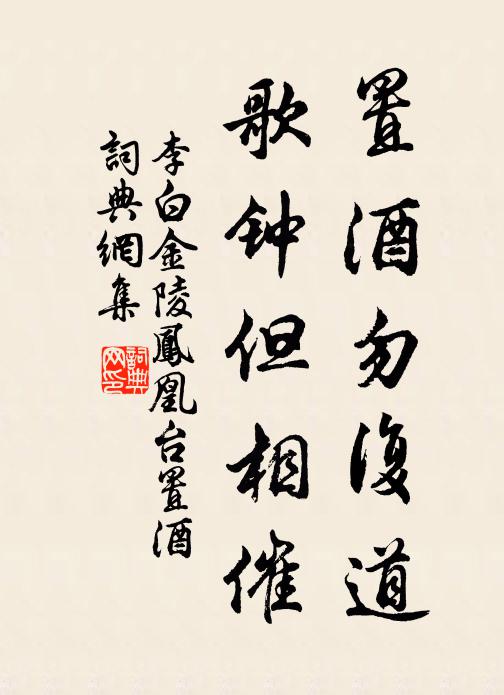 置酒勿复道
歌钟但相催
李白金陵鳳凰台置酒
詞典網集
詞典网印